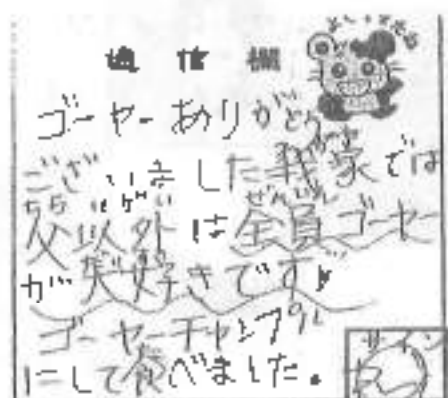 通信欄
ゴーヤーありがとう
ございました我家では
父以外は全員ゴーヤー
が大好きです
ゴーヤーチャンプル
にして食べました。
サイン